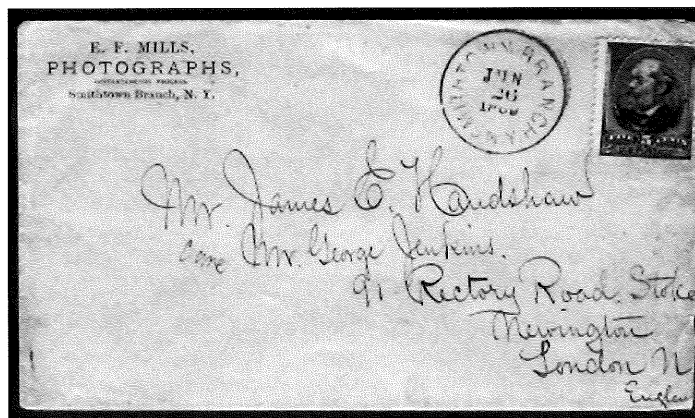 E. F. MILLS,
PHOTOGRAPHS,
INSTANTANEOUS PROCESS
Smithtown Branch, N. Y.
SMITHTOWN BRANCH
JUN
26
Mr. James E. Handshaw
Care Mr. George Jenkins.
91 Rectory Road. Stoke
Newington
London N
Englan